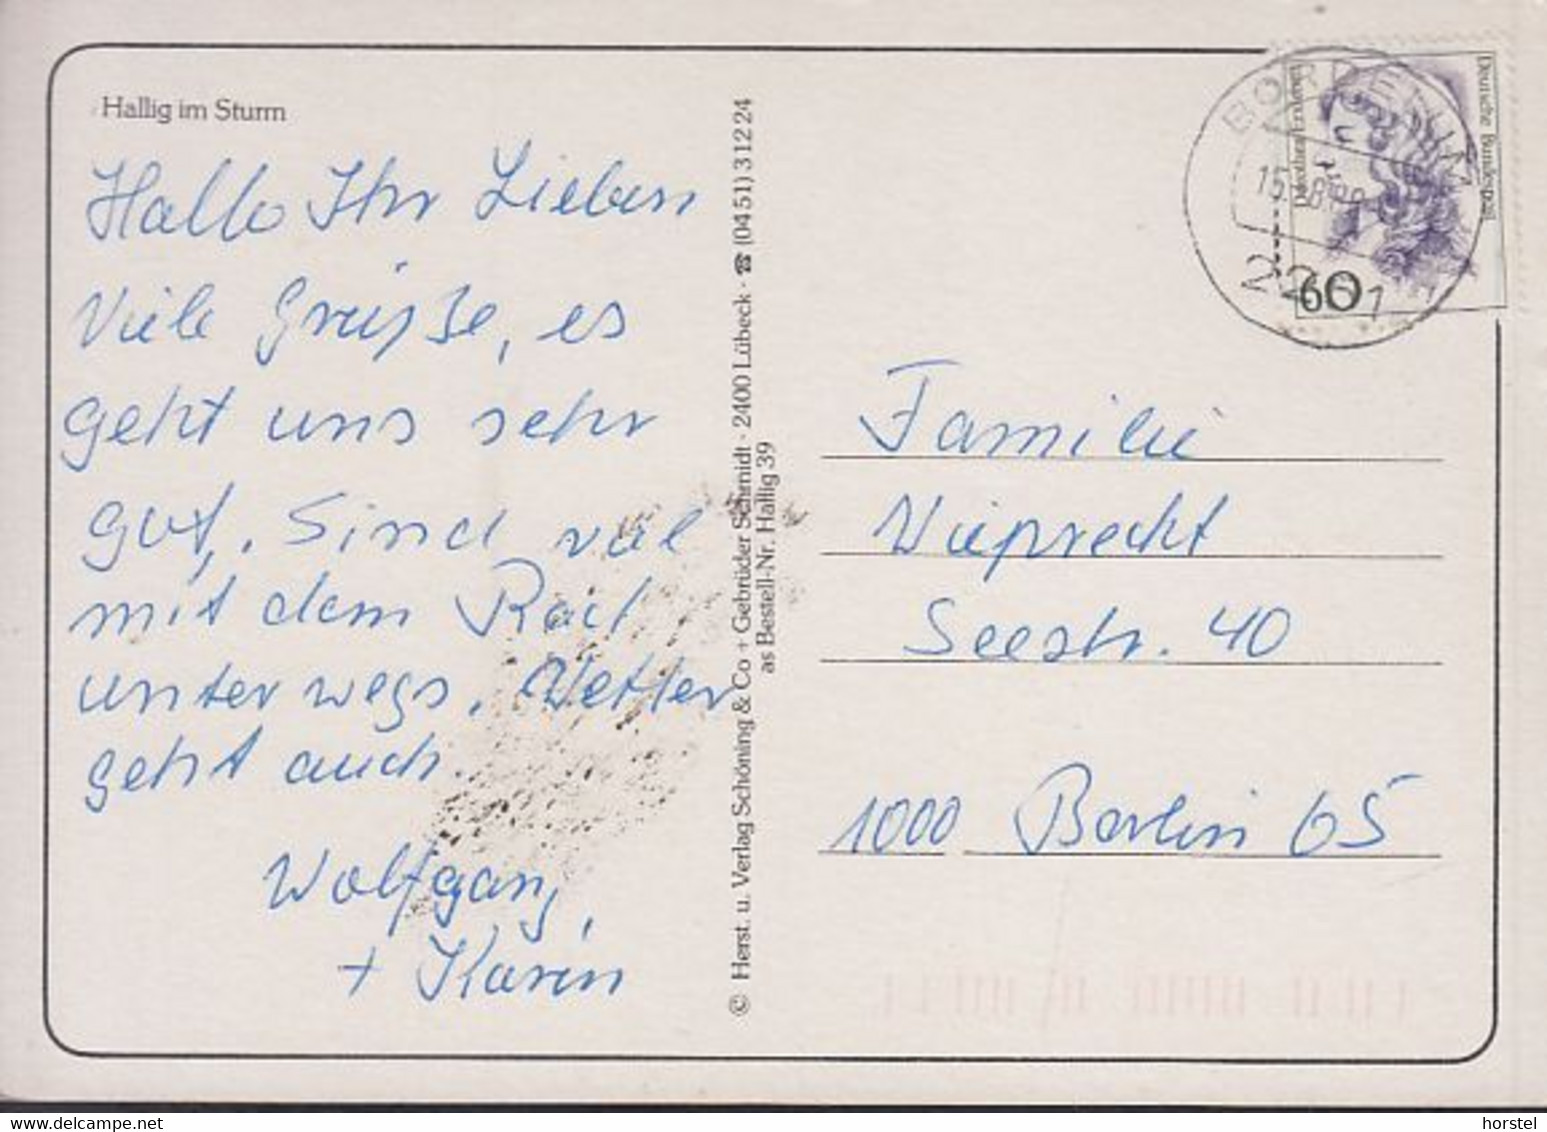 Hallig im Sturm
Hallo Ihr Lieben
Viele Grüße, es
geht uns sehr
gut. Sind viel
mit dem Rad
unterwegs. Wetter
geht auch.
Wolfgang,
+ Karin
© Herst. u. Verlag Schöning & Co + Gebrüder Schmidt · 2400 Lübeck · ☎ (0451) 31224
as Bestell-Nr. Hallig 39
Deutsche Bundespost
60
Familie
Wieprecht
Seestr. 40
1000 Berlin 65
www.delcampe.net
horstel